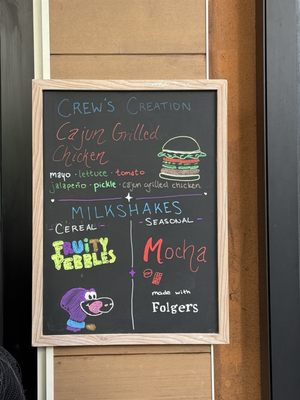 CREW'S CREATION
Cajun Grilled
Chicken
mayo · lettuce · tomato
jalapeño · pickle · cajun grilled chicken
MILKSHAKES
- CEREAL -
- SEASONAL -
FRUITY
PEBBLES
Mocha
made with
Folgers